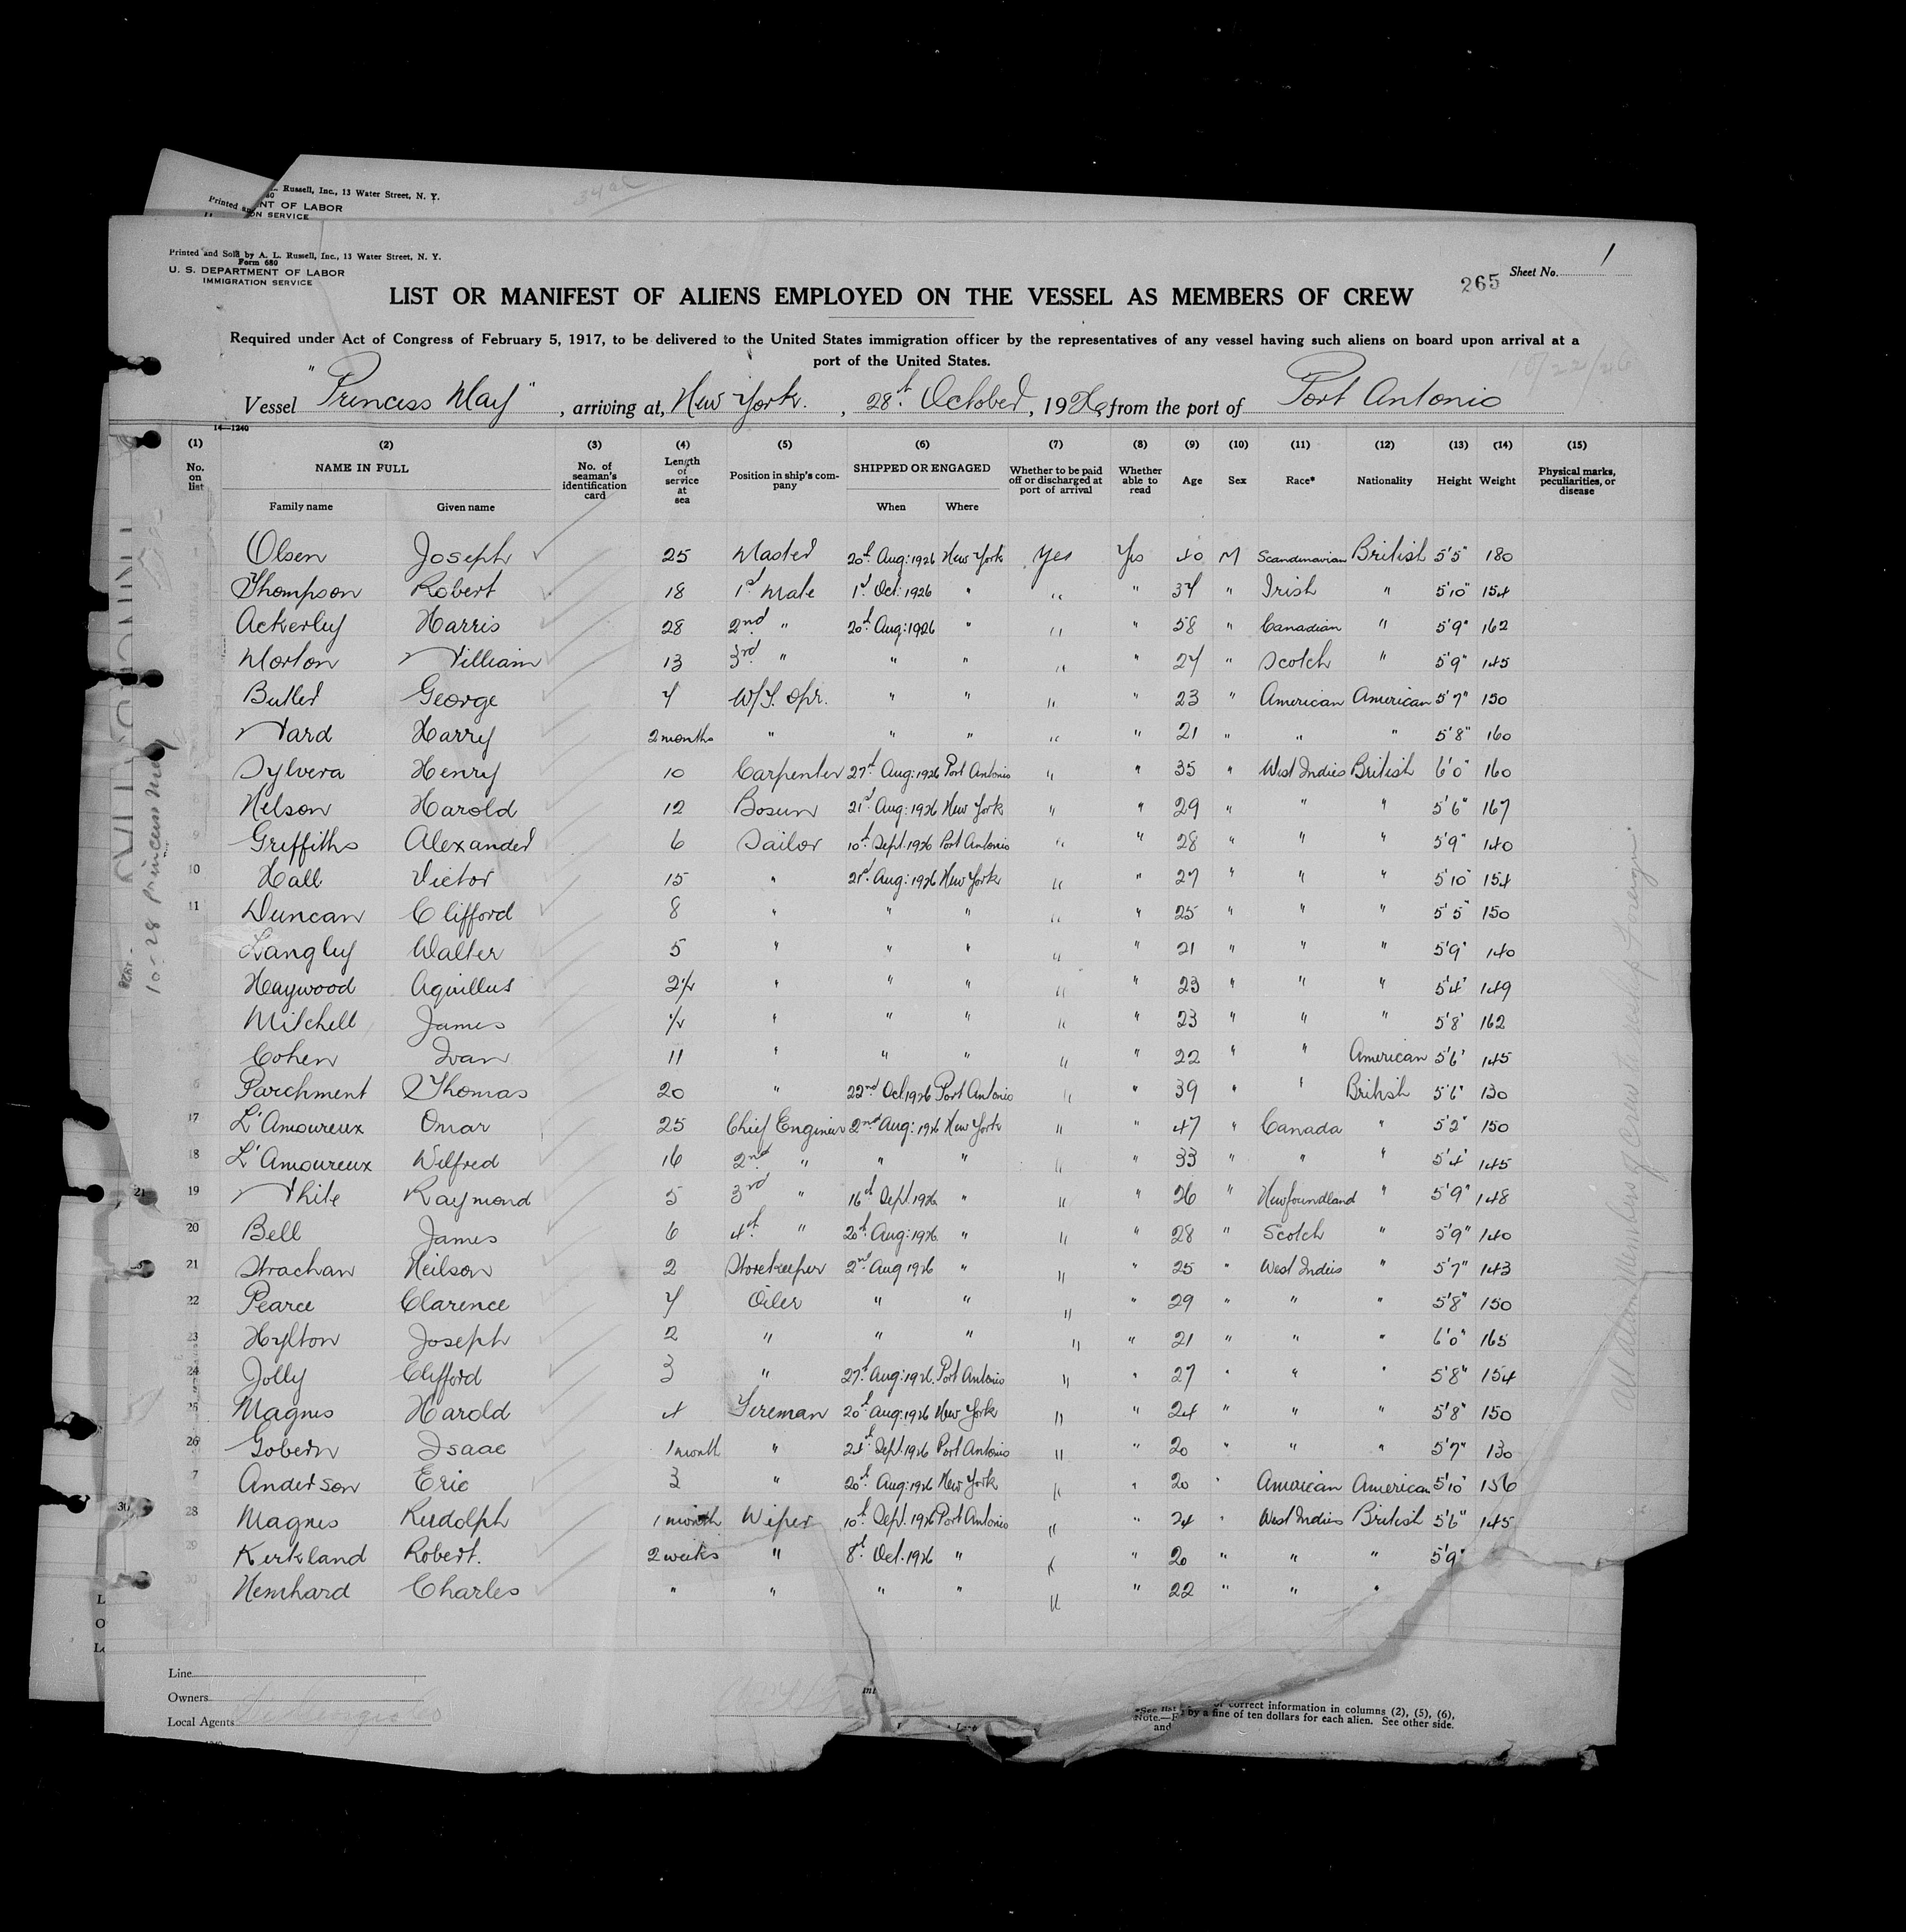 L. Russell, Inc., 13 Water Street, N. Y.
Printed an
NT OF LABOR
ON SERVICE
Printed and Sold by A. L. Russell, Inc., 13 Water Street, N. Y.
Form 680
U. S. DEPARTMENT OF LABOR
IMMIGRATION SERVICE
265 Sheet No. 1
LIST OR MANIFEST OF ALIENS EMPLOYED ON THE VESSEL AS MEMBERS OF CREW
Required under Act of Congress of February 5, 1917, to be delivered to the United States immigration officer by the representatives of any vessel having such aliens on board upon arrival at a
port of the United States.
10/22/26
Vessel "Princess May", arriving at, New York., 28th October, 1926, from the port of Port Antonio
14—1240
(1) (2) (3) (4) (5) (6) (7) (8) (9) (10) (11) (12) (13) (14) (15)
No. on list NAME IN FULL Family name Given name No. of seaman's identification card Length of service at sea Position in ship's company SHIPPED OR ENGAGED When Where Whether to be paid off or discharged at port of arrival Whether able to read Age Sex Race* Nationality Height Weight Physical marks, peculiarities, or disease
1 Olsen Joseph 25 Master 20th Aug: 1926 New York Yes Yes 40 M Scandinavian British 5'5" 180
Thompson Robert 18 1st Mate 1st Oct: 1926 " " " 34 " Irish " 5'10" 154
Ackerley Harris 28 2nd " 20th Aug: 1926 " " " 58 " Canadian " 5'9" 162
Morton William 13 3rd " " " " " 24 " Scotch " 5'9" 145
Butler George 4 W/T. Opr. " " " " 23 " American American 5'7" 150
Ward Harry 2 months " " " " " 21 " " " 5'8" 160
Sylvera Henry 10 Carpenter 27th Aug: 1926 Port Antonio " " 35 " West Indies British 6'0" 160
Nelson Harold 12 Bosun 21st Aug: 1926 New York " " 29 " " " 5'6" 167
9 Griffiths Alexander 6 Sailor 10th Sept. 1926 Port Antonio " " 28 " " " 5'9" 140
10 Hall Victor 15 " 21st Aug: 1926 New York " " 27 " " " 5'10" 154
11 Duncan Clifford 8 " " " " " 25 " " " 5'5" 150
12 Langley Walter 5 " " " " " 21 " " " 5'9" 140
Haywood Aquillus 2½ " " " " " 23 " " " 5'4" 149
Mitchell James ½ " " " " " 23 " " " 5'8" 162
Cohen Ivan 11 " " " " " 22 " " American 5'6" 145
6 Parchment Thomas 20 " 22nd Oct. 1926 Port Antonio " " 39 " " British 5'6" 130
17 L'Amoureux Omar 25 Chief Engineer 2nd Aug: 1926 New York " " 47 " Canada " 5'2" 150
18 L'Amoureux Wilfred 16 2nd " " " " " 33 " " " 5'4" 145
19 White Raymond 5 3rd " 16th Sept. 1926 " " " 26 " Newfoundland " 5'9" 148
20 Bell James 6 4th " 20th Aug: 1926 " " " 28 " Scotch " 5'9" 140
21 Strachan Neilson 2 Storekeeper 2nd Aug 1926 " " " 25 " West Indies " 5'7" 143
22 Pearce Clarence 4 Oiler " " " " 29 " " " 5'8" 150
23 Hylton Joseph 2 " " " " " 21 " " " 6'0" 165
24 Jolly Clifford 3 " 27th Aug: 1926. Port Antonio " " 27 " " " 5'8" 154
25 Magnus Harold 4 Fireman 20th Aug: 1926 New York " " 24 " " " 5'8" 150
26 Gobern Isaac 1 month " 24th Sept. 1926 Port Antonio " " 20 " " " 5'7" 130
7 Anderson Eric 3 " 20th Aug: 1926 New York " " 20 " American American 5'10" 156
28 Magnus Rudolph 1 month Wiper 10th Sept. 1926 Port Antonio " " 24 " West Indies British 5'6" 145
29 Kirkland Robert. 2 weeks " 8th Oct. 1926 " " " 20 " " " 5'9"
30 Hemhard Charles " " " " " " 22 " " "
10-28 Princess May
All alien members of Crew to reship foreign.
21
30
Line
Owners
Local Agents
*See list
Note.—F of correct information in columns (2), (5), (6),
and by a fine of ten dollars for each alien. See other side.